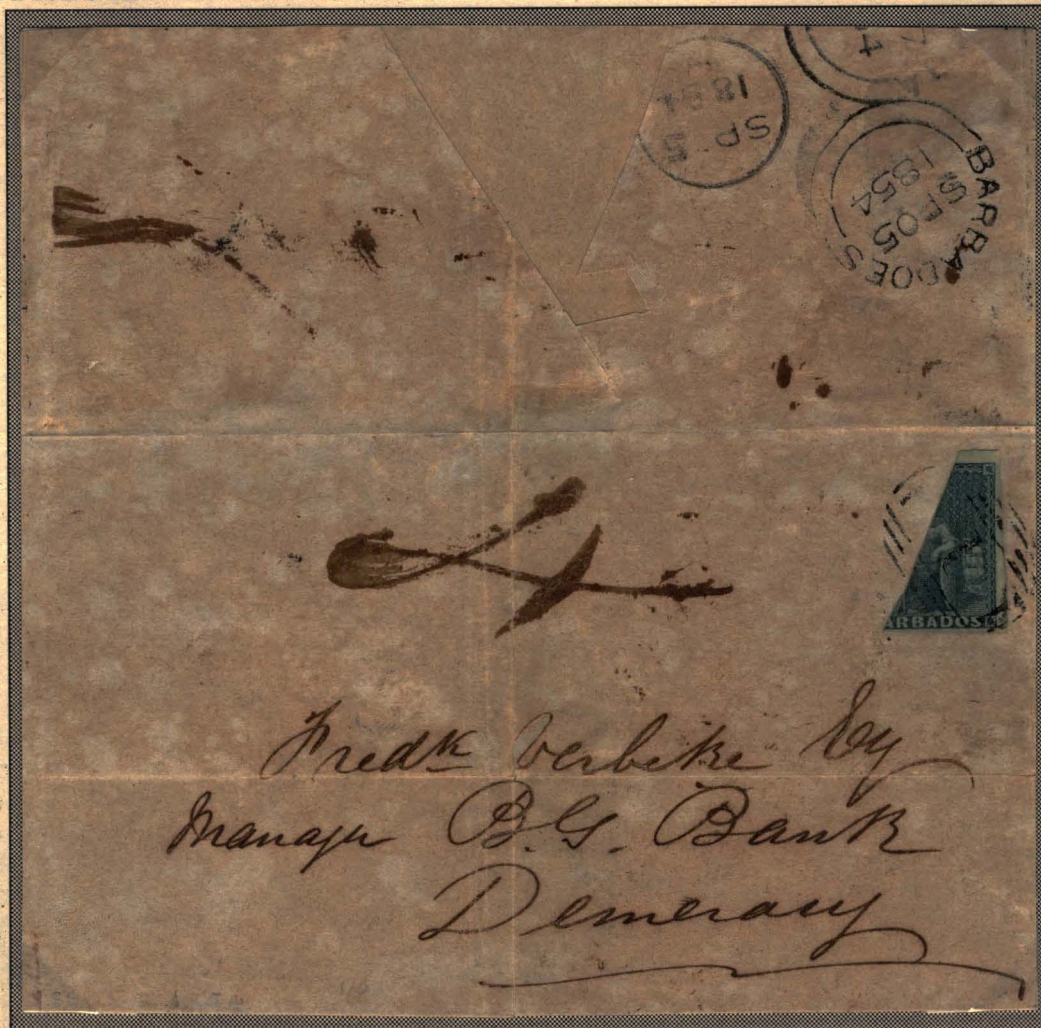 SP 5
1854
BARBADOES
SP 05
1854
4
ARBADOS
Fredk Verbeke Esq
Manager B.G. Bank
Demerary